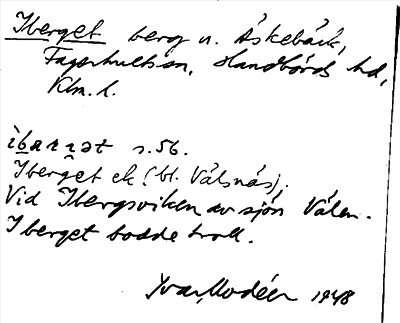 Iberget berg n. Åskebäck,
Fagerhults sn, Handbörds hd,
Klm. l.
ìbærjət s. 56.
Iberget ek (bl. Välsnäs),
Vid Ibergsviken av sjön Välen.
I berget bodde troll.
Ivar Modéer 1948